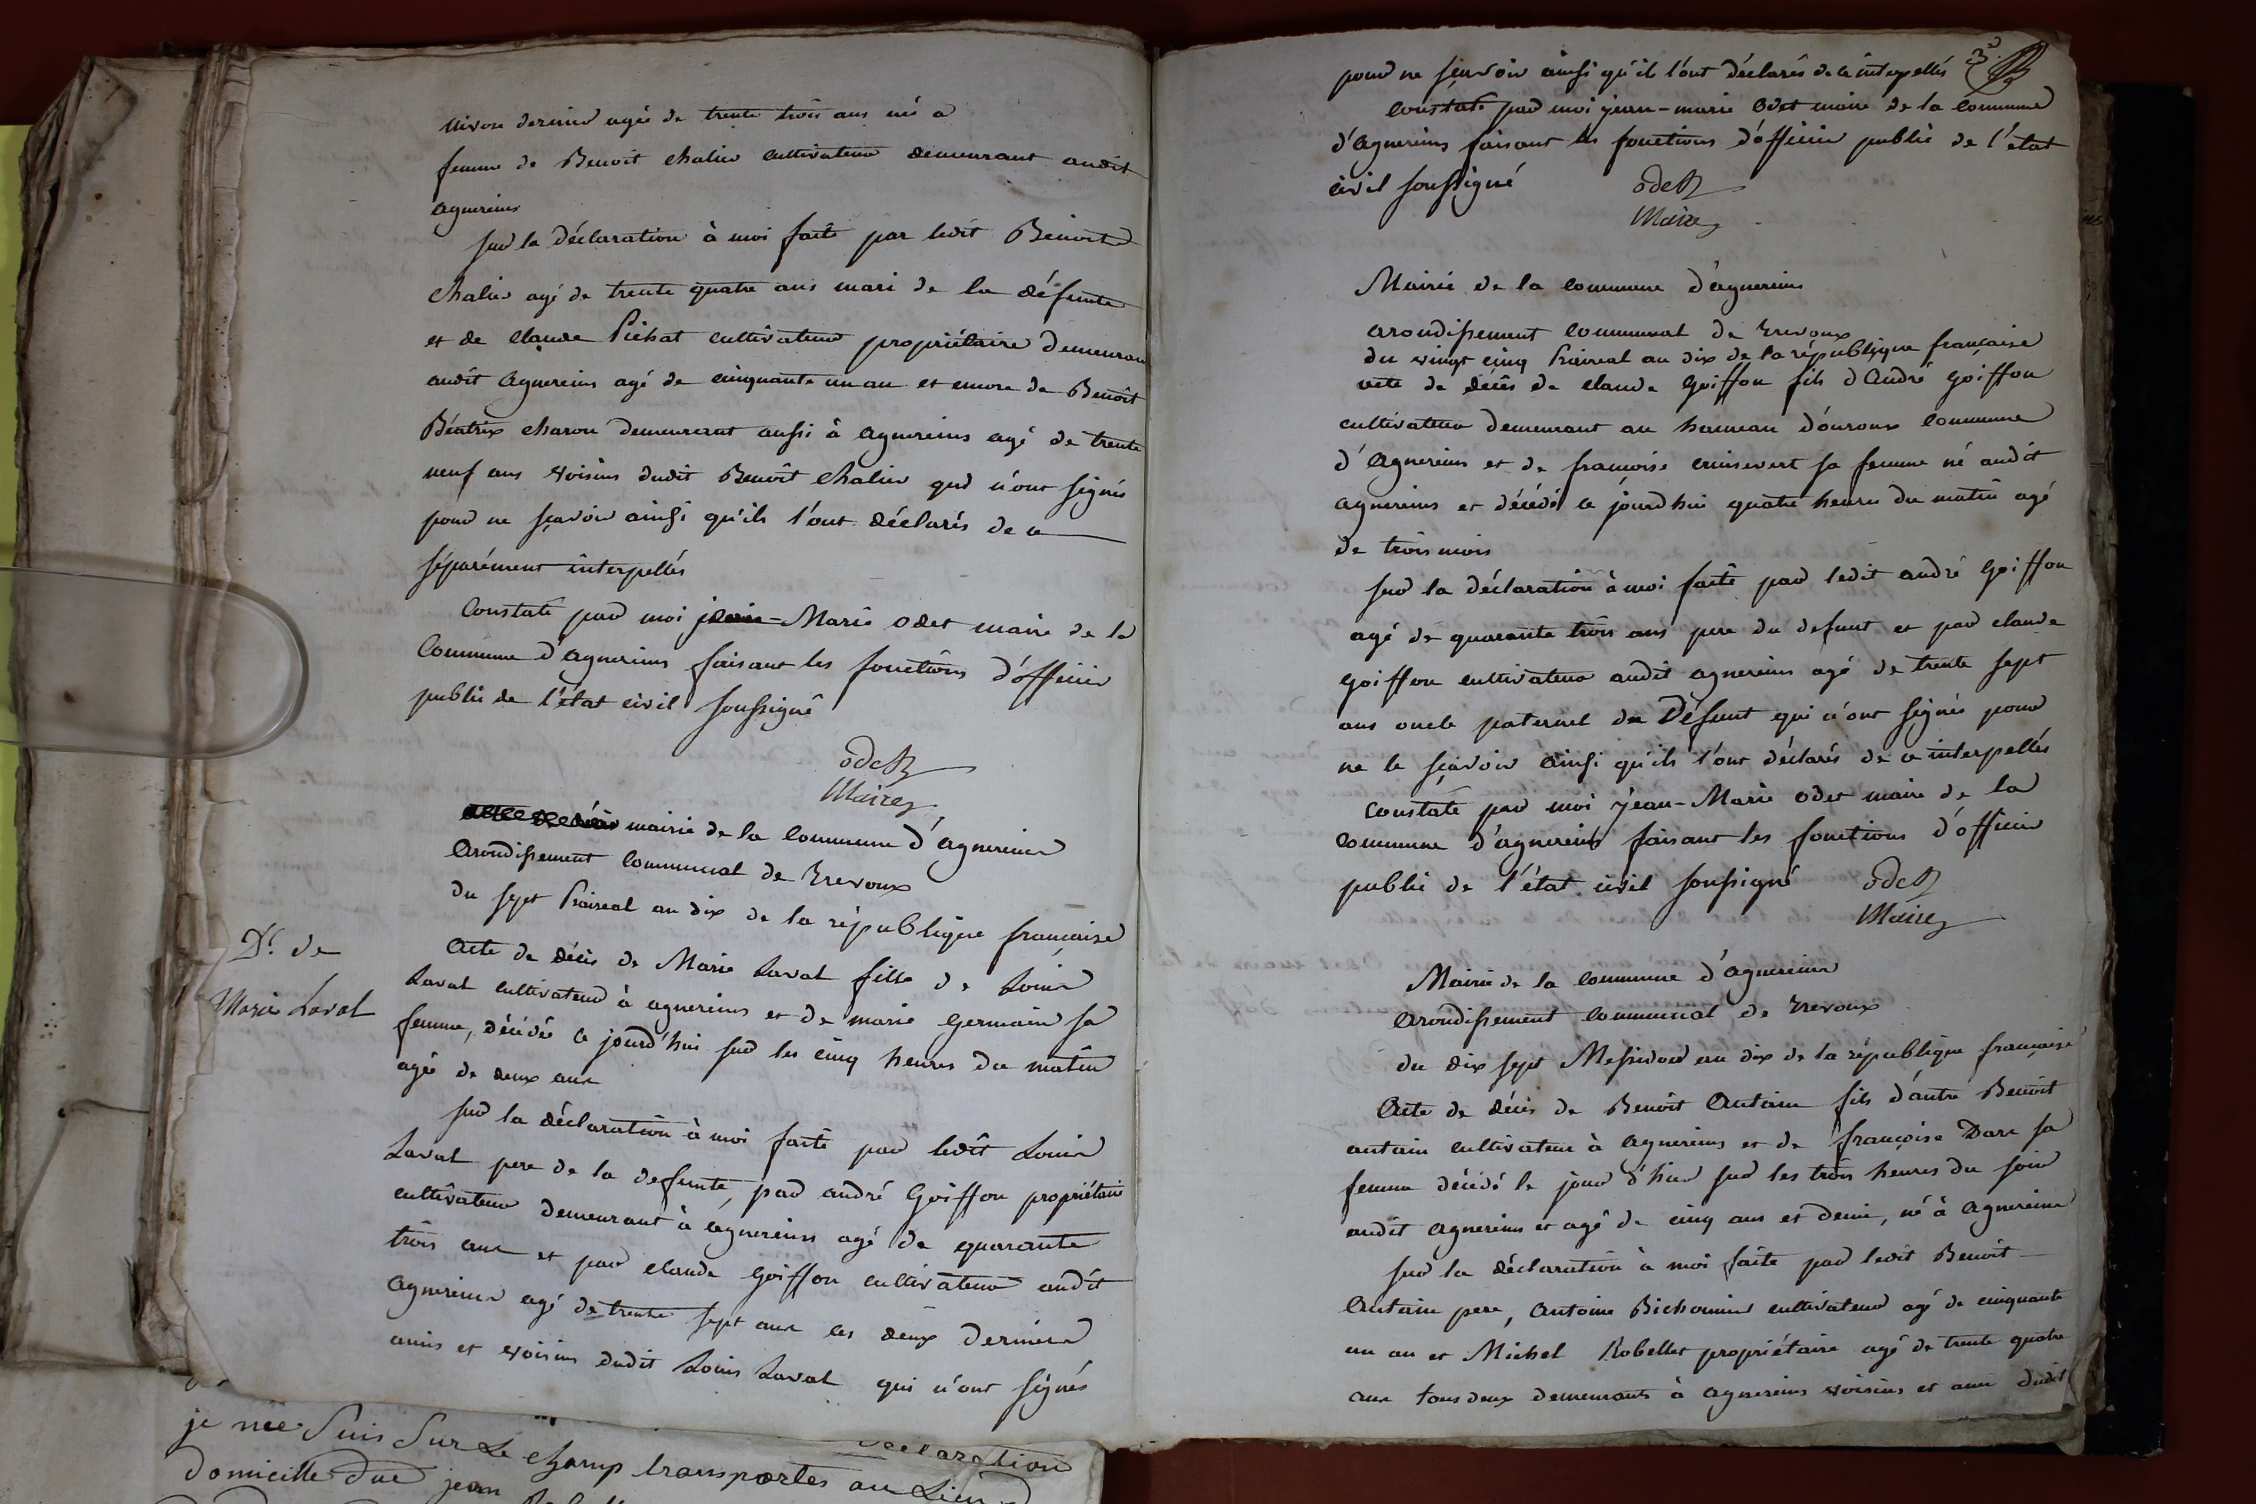 nivose dernier agée de trente trois ans née a
femme de Benoit chalier cultivateur demeurant audit
agnereins
sur la déclaration à moi faite par ledit Benoit
chalier agé de trente quatre ans mari de la défunte
et de claude Pichat cultivateur propriétaire demeurant
audit agnereins agé de cinquante un an et encore de Benoît
Béatrix charon demeurant aussi à agnereins agé de trente
neuf ans voisins dudit Benoît chalier qui n'ont signés
pour ne sçavoir ainsi qu'ils l'ont déclarés de ce
séparément interpellés
Constaté par moi jean-Marie odet maire de la
Commune d'agnereins faisant les fonctions d'officier
public de l'état civil soussigné
odet
Maire
mairie de la commune d'agnereins
arondissement communal de Trevoux
du sept Praireal an dix de la république française
Acte de décès de Marie Laval fille de Louis
Laval cultivateur à agnereins et de marie Germain sa
femme, décédée ce jourd'hui sur les cinq heures du matin
agée de deux ans
D.s de
Marie Laval
sur la déclaration à moi faite par ledît Louis
Laval pere de la defunte, par andré Goiffon propriétaire
cultivateur demeurant à agnereins agé de quarante
trois ans et par claude Goiffon cultivateur audit
agnereins agé de trente sept ans les deux derniers
amis et voisins dudit Louis Laval qui n'ont signés
je me suis sur Le champ transportes au Lieu
declaration
domicille due jean
pour ne sçavoir ainsi qu'il l'ont déclarés de ce interpellés
constaté par moi jean-marie odet maire de la commune
d'agnereins faisant les fonctions d'officier public de l'état
civil soussigné
odet
Maire
Mairie de la commune d'agnereins
arondissement communal de Trevoux
du vingt cinq Praireal an dix de la république française
acte de décès de claude Goiffon fils d'André Goiffon
cultivateur demeurant au hameau d'ouroux commune
d'agnereins et de françoise cruisevert sa femme né audit
agnereins et décédé ce jourd'hui quatre heures du matin agé
de trois mois
sur la déclaration à moi faite par ledit andré Goiffon
agé de quarante trois ans pere du defunt et par claude
Goiffon cultivateur audit agnereins agé de trente sept
ans oncle paternel du Défunt qui n'ont signés pour
ne le sçavoir ainsi qu'ils l'ont déclarés de ce interpellés
Constaté par moi jean-Marie odet maire de la
commune d'agnereins faisant les fonctions d'officier
public de l'état civil soussigné
odet
Maire
Mairie de la commune d'agnereins
arondissement communal de Trevoux
du dix sept Messidor an dix de la république française
Acte de décès de Benoît Antain fils d'autre Benoit
antain cultivateur à agnereins et de françoise Darc sa
femme décédé le jour d'hier sur les trois heures du soir
audit agnereins et agé de cinq ans et demi, né à agnereins
sur la déclaration à moi faite par ledit Benoit
Antain pere, antoine Bichonnier cultivateur agé de cinquante
un an et Michel Robellet propriétaire agé de trente quatre
ans tous deux demeurants à agnereins voisins et ami dudit